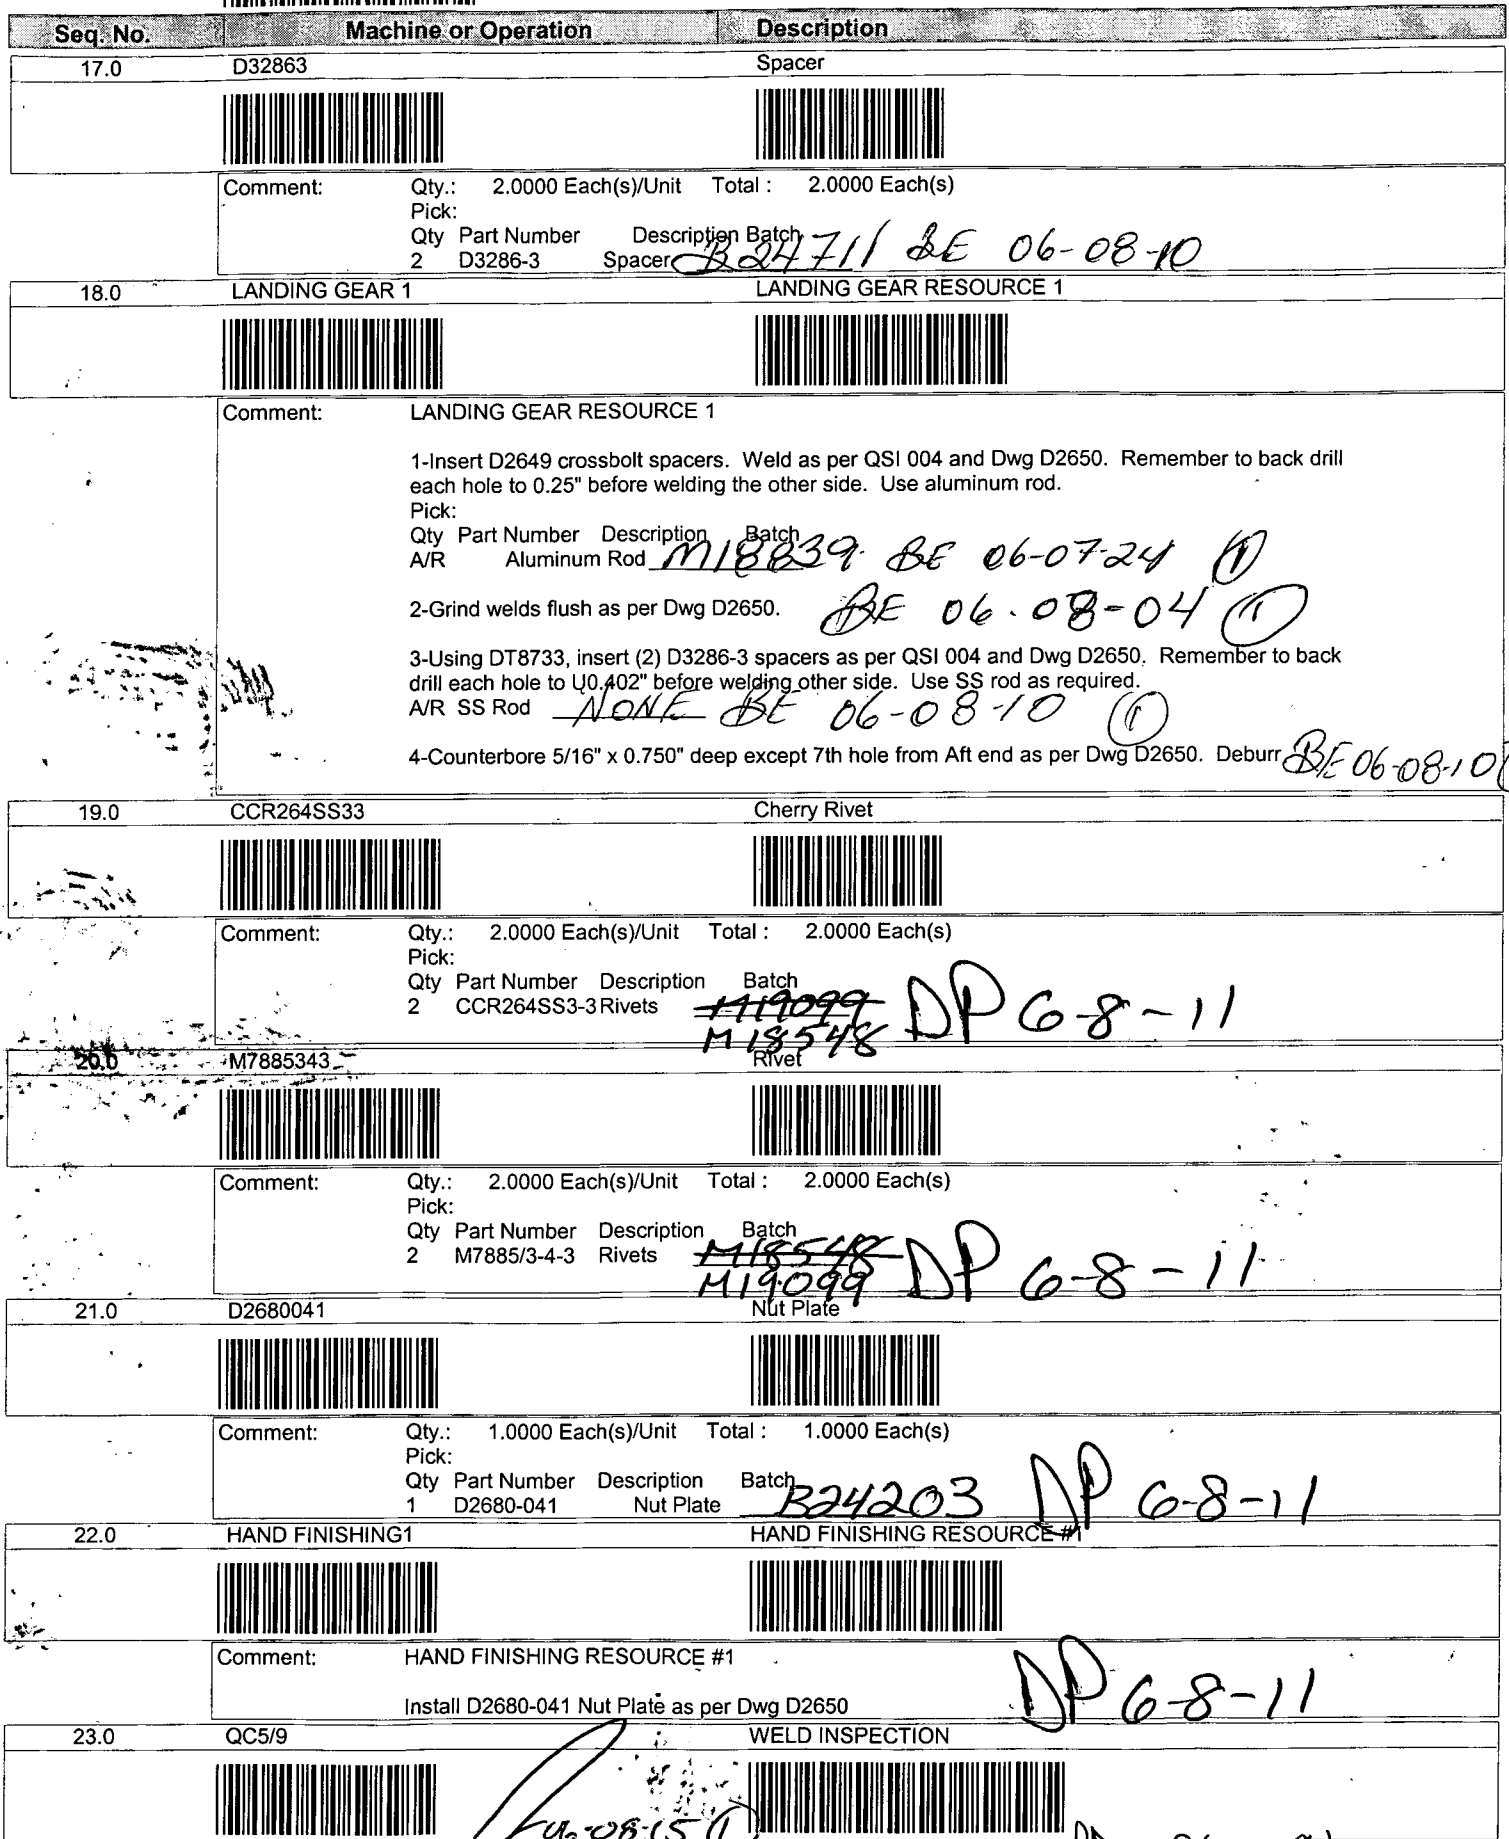 Seq. No. Machine or Operation Description
17.0 D32863 Spacer
Comment: Qty.: 2.0000 Each(s)/Unit Total : 2.0000 Each(s)
Pick:
Qty Part Number Description Batch
2 D3286-3 Spacer B24711 BE 06-08-10
18.0 LANDING GEAR 1 LANDING GEAR RESOURCE 1
Comment: LANDING GEAR RESOURCE 1
1-Insert D2649 crossbolt spacers. Weld as per QSI 004 and Dwg D2650. Remember to back drill
each hole to 0.25" before welding the other side. Use aluminum rod.
Pick:
Qty Part Number Description Batch
A/R Aluminum Rod M18839 BE 06-07-24 1
2-Grind welds flush as per Dwg D2650. BE 06-08-04 1
3-Using DT8733, insert (2) D3286-3 spacers as per QSI 004 and Dwg D2650. Remember to back
drill each hole to U0.402" before welding other side. Use SS rod as required.
A/R SS Rod NONE BE 06-08-10 1
4-Counterbore 5/16" x 0.750" deep except 7th hole from Aft end as per Dwg D2650. Deburr BE 06-08-10
19.0 CCR264SS33 Cherry Rivet
Comment: Qty.: 2.0000 Each(s)/Unit Total : 2.0000 Each(s)
Pick:
Qty Part Number Description Batch
2 CCR264SS3-3 Rivets M19099 DP 6-8-11
M18548
20.0 M7885343 Rivet
Comment: Qty.: 2.0000 Each(s)/Unit Total : 2.0000 Each(s)
Pick:
Qty Part Number Description Batch
2 M7885/3-4-3 Rivets M18548 DP 6-8-11
M19099
21.0 D2680041 Nut Plate
Comment: Qty.: 1.0000 Each(s)/Unit Total : 1.0000 Each(s)
Pick:
Qty Part Number Description Batch
1 D2680-041 Nut Plate B24203 DP 6-8-11
22.0 HAND FINISHING1 HAND FINISHING RESOURCE #1
Comment: HAND FINISHING RESOURCE #1
Install D2680-041 Nut Plate as per Dwg D2650 DP 6-8-11
23.0 QC5/9 WELD INSPECTION
06-08-15 1